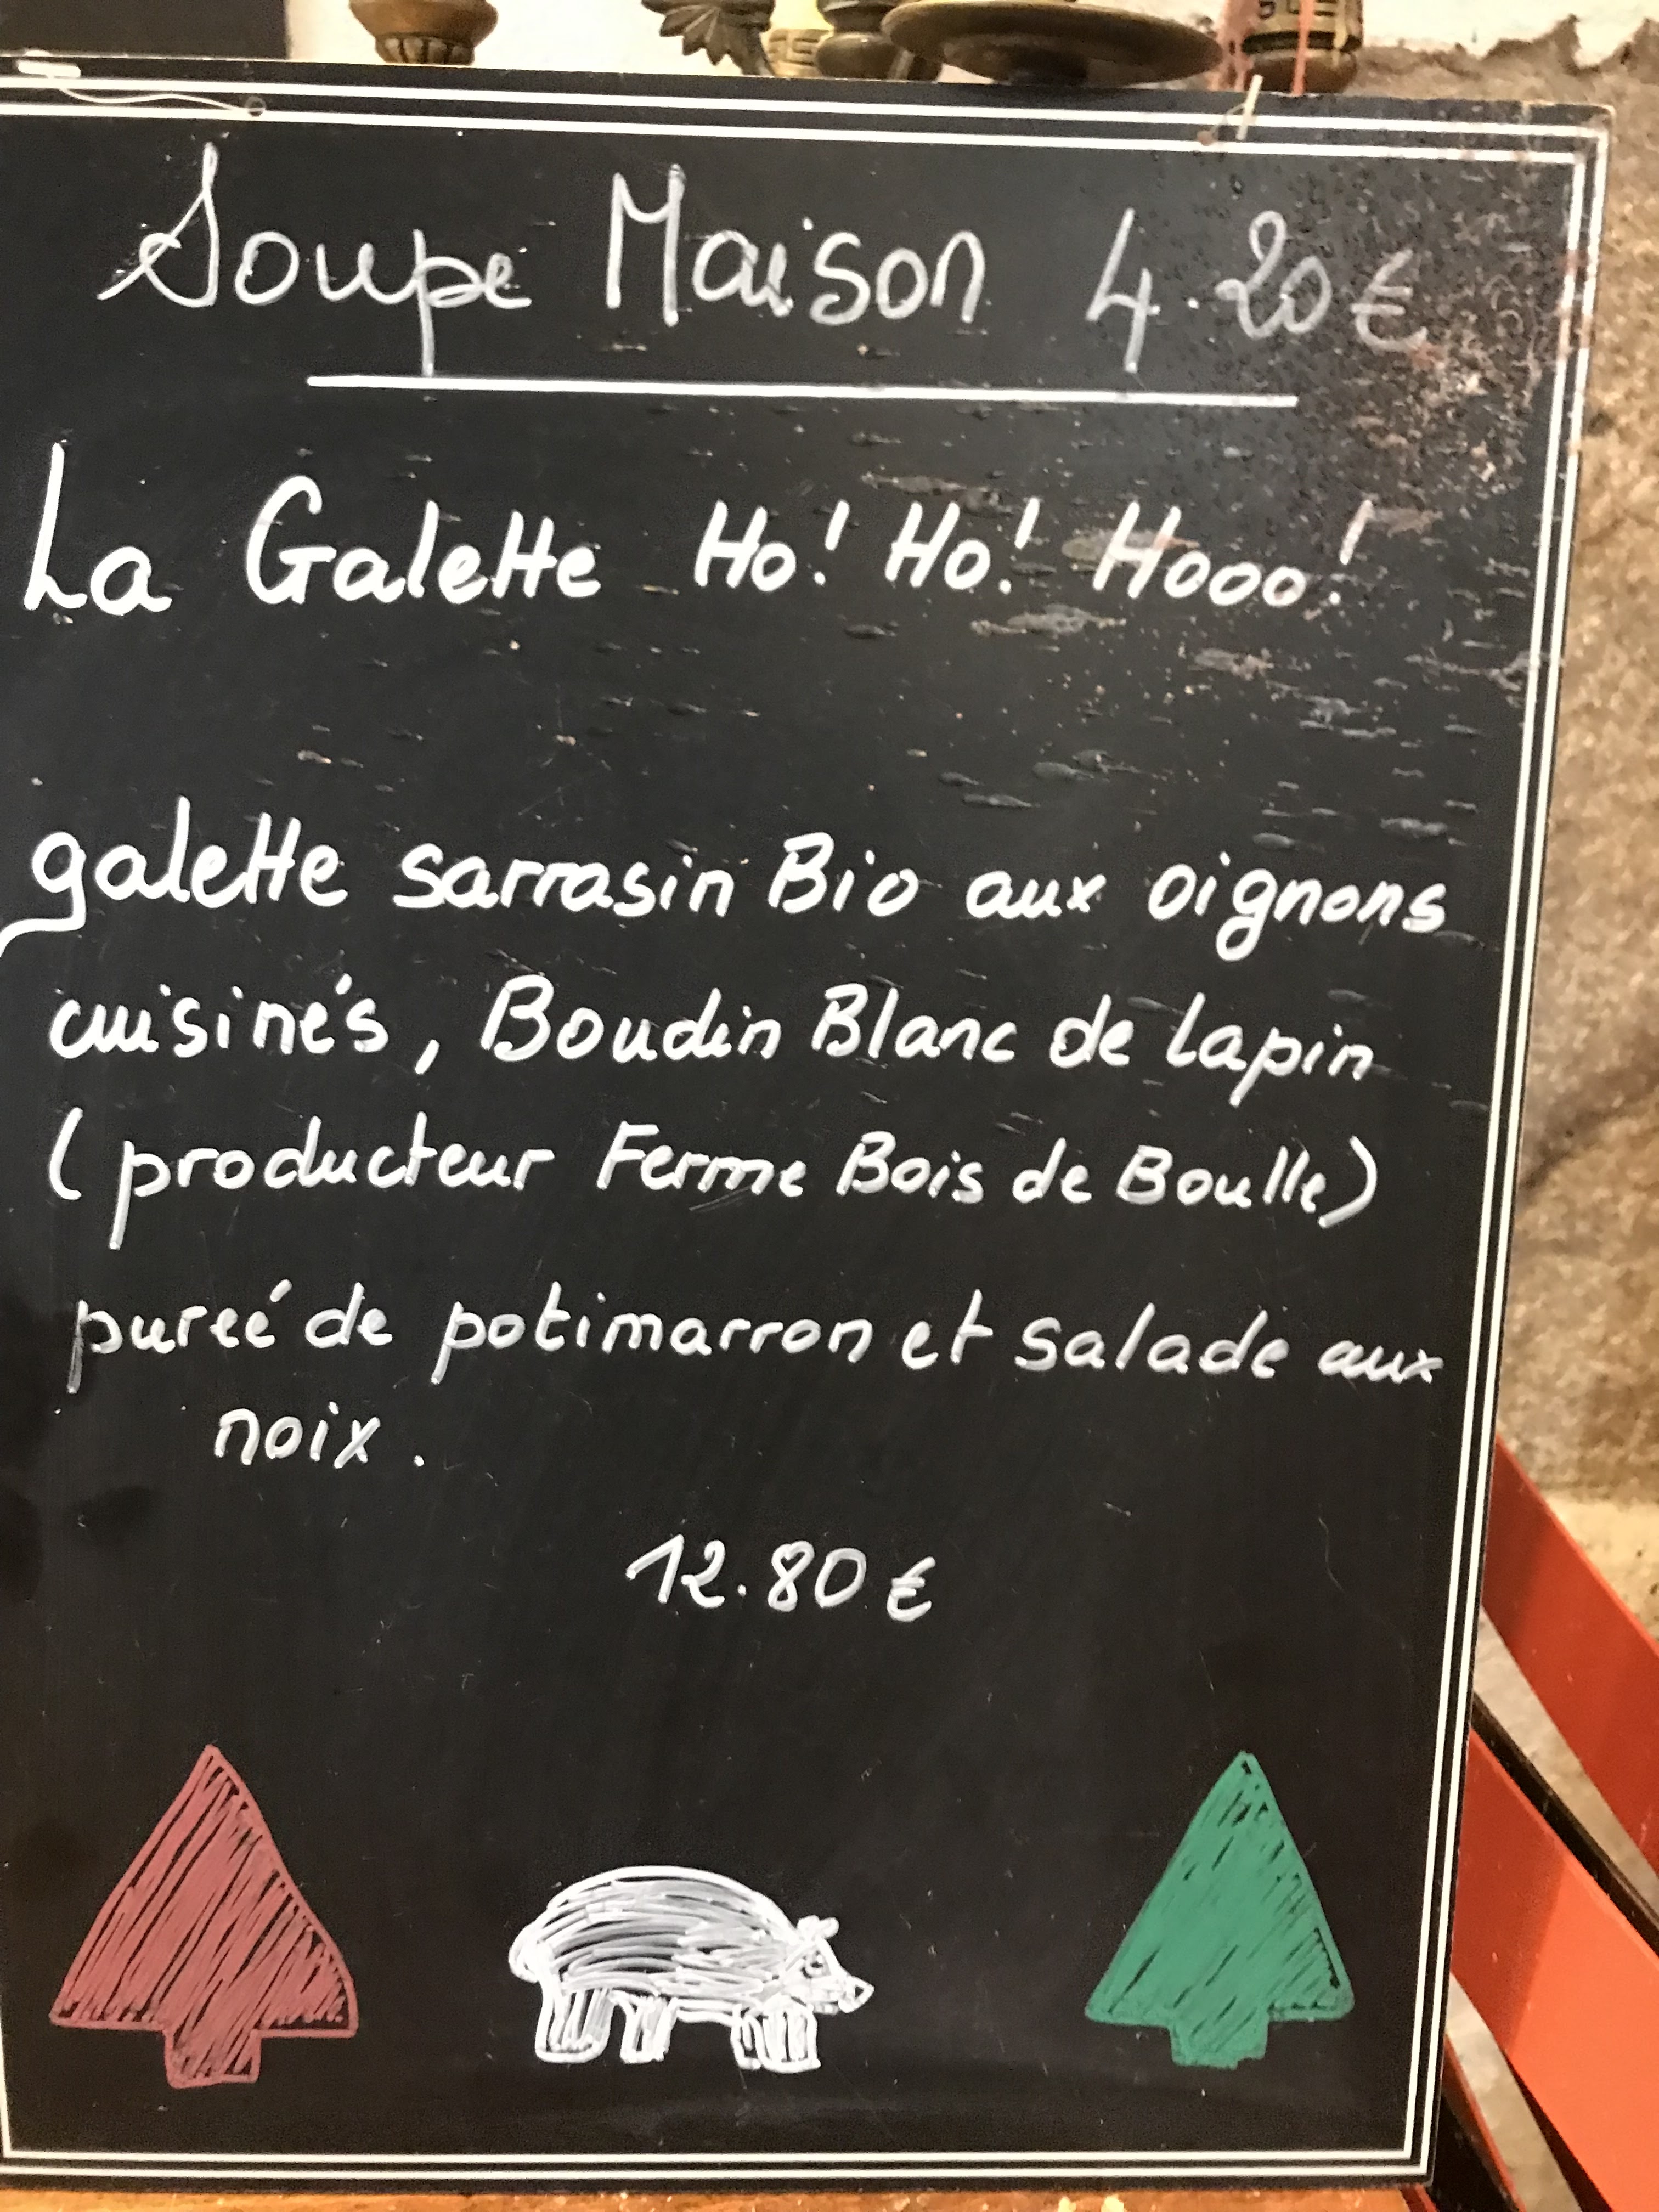 Soupe Maison 4.20€
La Galette Ho! Ho! Hooo!
galette sarrasin Bio aux oignons
cuisinés, Boudin Blanc de lapin
(producteur Ferme Bois de Boulle)
pureé de potimarron et salade aux
noix.
12.80€